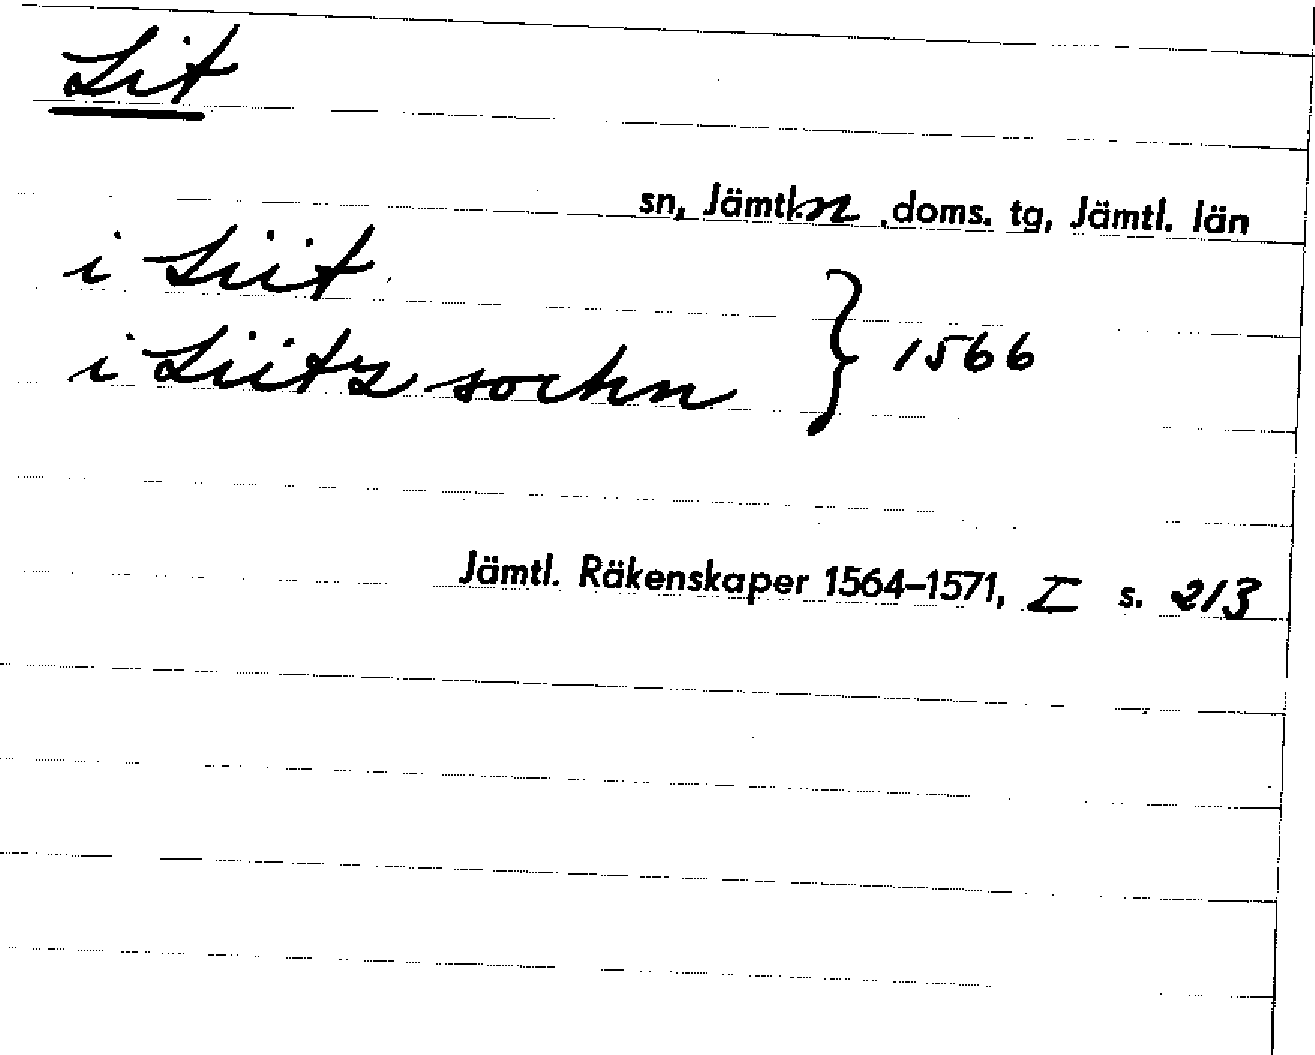 Lit
sn, Jämtl. n doms. tg, Jämtl. län
i Liit
i Liitz sochn } 1566
Jämtl. Räkenskaper 1564–1571, I s. 213